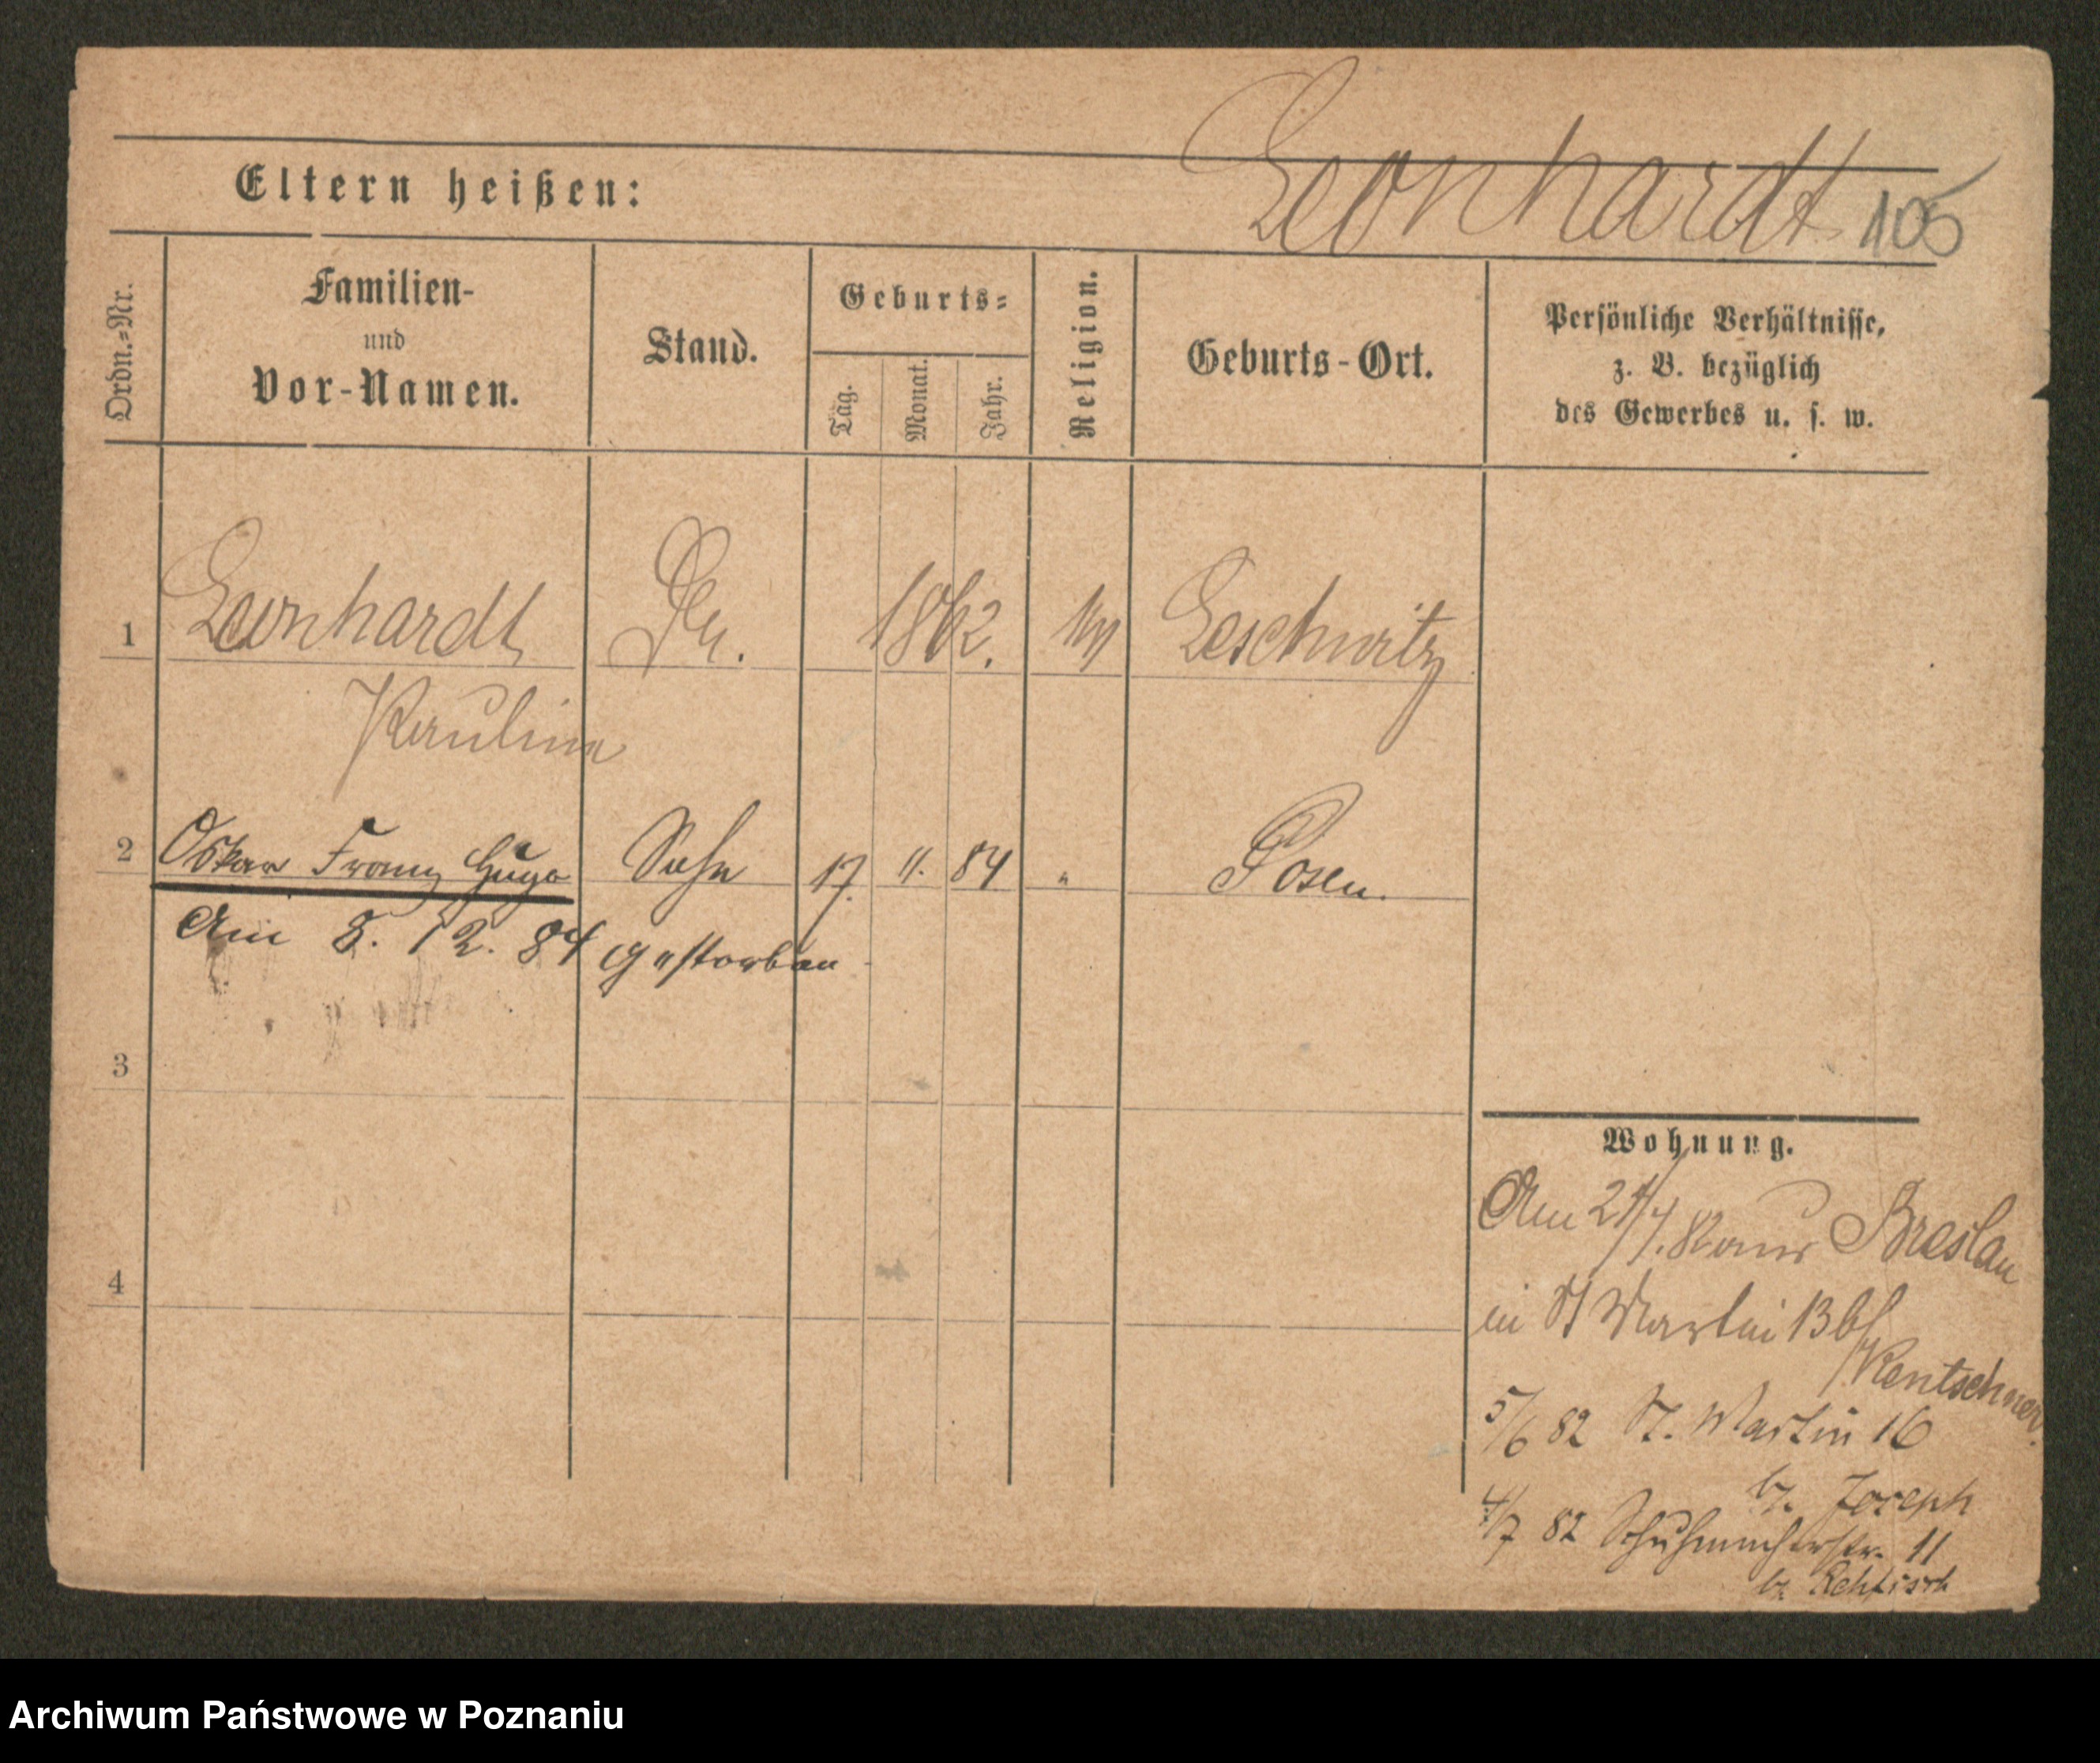 Leonhardt 105
Eltern heißen:
Ordn.=Nr.
Familien-
und
Vor-Namen.
Stand.
Geburts=
Tag.
Monat.
Jahr.
Religion.
Geburts-Ort.
Persönliche Verhältnisse,
z. B. bezüglich
des Gewerbes u. s. w.
1 Leonhardt 1862. Leschwitz
Pauline
2 Oskar Franz Hugo Sohn 17. 11. 84 " Posen.
Am 8. 12. 84 gestorben
3
4
Wohnung.
Am 21/4. Breslau
in St Martin 13 bf
Rentschner.
5/6 82 St. Martin 16
bz. Joseph
4/7 82 Schuhmacherstr. 11
bz
Archiwum Państwowe w Poznaniu